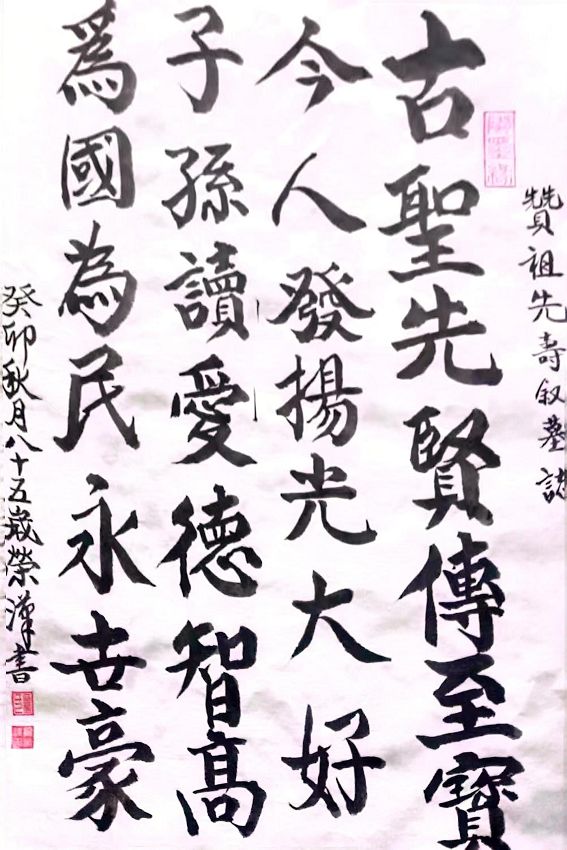 贊祖先壽叙墓誌
古聖先賢傳至寶
今人發揚光大好
子孫讀愛德智高
為國為民永世豪
癸卯秋月八十五歲榮漢書